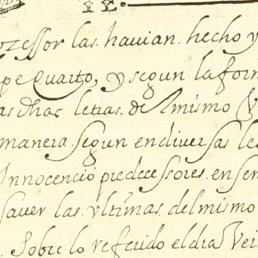 ozessor las havian hecho y
pe Quarto, y segun la for
as dhas letras del mismo
manera segun en diversas le
Innocencio predecessores en sen
saver las vltimas del mismo
Sobre lo referido el dia Vei